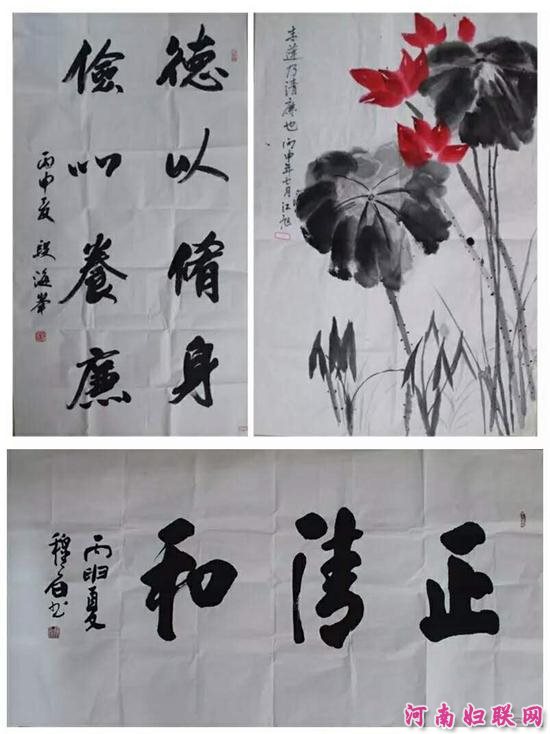 德以脩身
儉以養廉
丙申夏 段海峯
赤莲乃清廉也 丙申年七月江旭
正清和
丙申夏
穆石书
河南妇联网